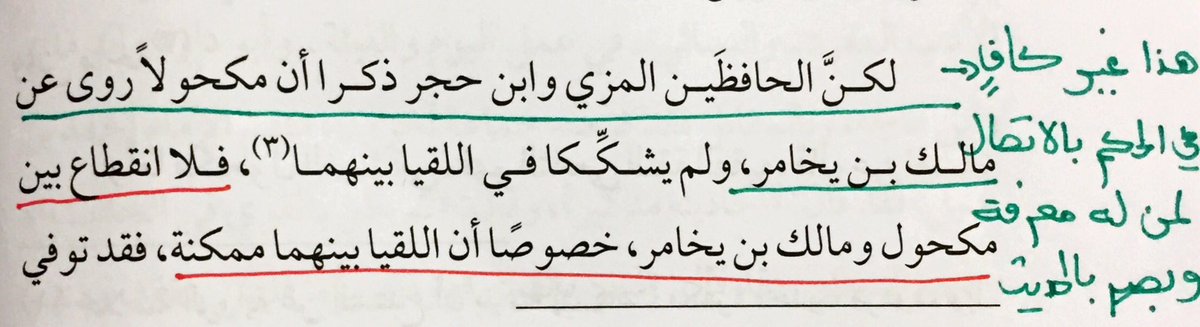 لكنَّ الحافظَين المزي وابن حجر ذكرا أن مكحولاً روى عن
مالك بن يخامر، ولم يشكِّكا في اللقيا بينهما(٣)، فلا انقطاع بين
مكحول ومالك بن يخامر، خصوصًا أن اللقيا بينهما ممكنة، فقد توفي
هذا غير كافٍ
في الحكم بالاتصال
لمن له معرفة
وبصر بالحديث